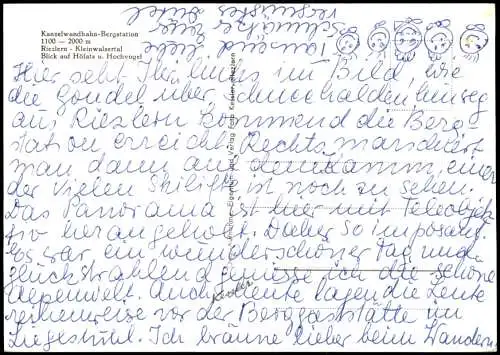 Kanzelwandbahn-Bergstation
1100 — 2000 m
Riezlern - Kleinwalsertal
Blick auf Höfats u. Hochvogel
Tausend liebe
Hier seht Ihr links im Bild wie
die Gondel über Schneehalden hinweg
aus Riezlern kommend die Berg
station erreicht. Rechts marschiert
man dann auf den Kamm, einer
der vielen Skilifte ist noch zu sehen.
Das Panorama ist hier mit Teleobjek
tiv herangeholt. Daher so imposant.
Es war ein wunderschöner Tag und
glückstrahlend genoss ich die schöne
Alpenwelt. Auch heute lagen die Leute
reihenweise vor der Berggaststätte im
Liegestuhl. Ich bräune lieber beim Wandern